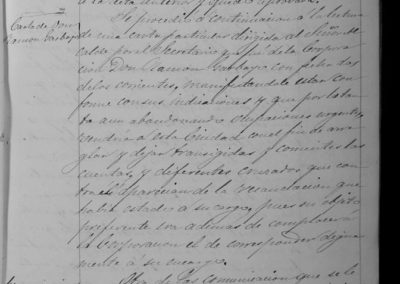 Carta de Don
Ramon
Se procedió a continuacion a la lectura
de una carta particular dirigida al Señor Al-
calde por el Secretario que fué de la Corpora-
cion Don Ramon con fecha dos
de los corrientes, manifestandole estar con-
forme con sus indicaciones y que por lo tan-
to aun abandonando ocupaciones urgentes,
vendria a esta Ciudad con el fin de arre-
glar y dejar transigidas y corrientes las
cuentas y diferentes que con-
tra el aparecian de la recaudacion que
habia estado a su cargo, pues su objeto
preferente era ademas de complacer á
la Corporacion el de corresponder digna-
mente á su encargo.
de las comunicacion que se le